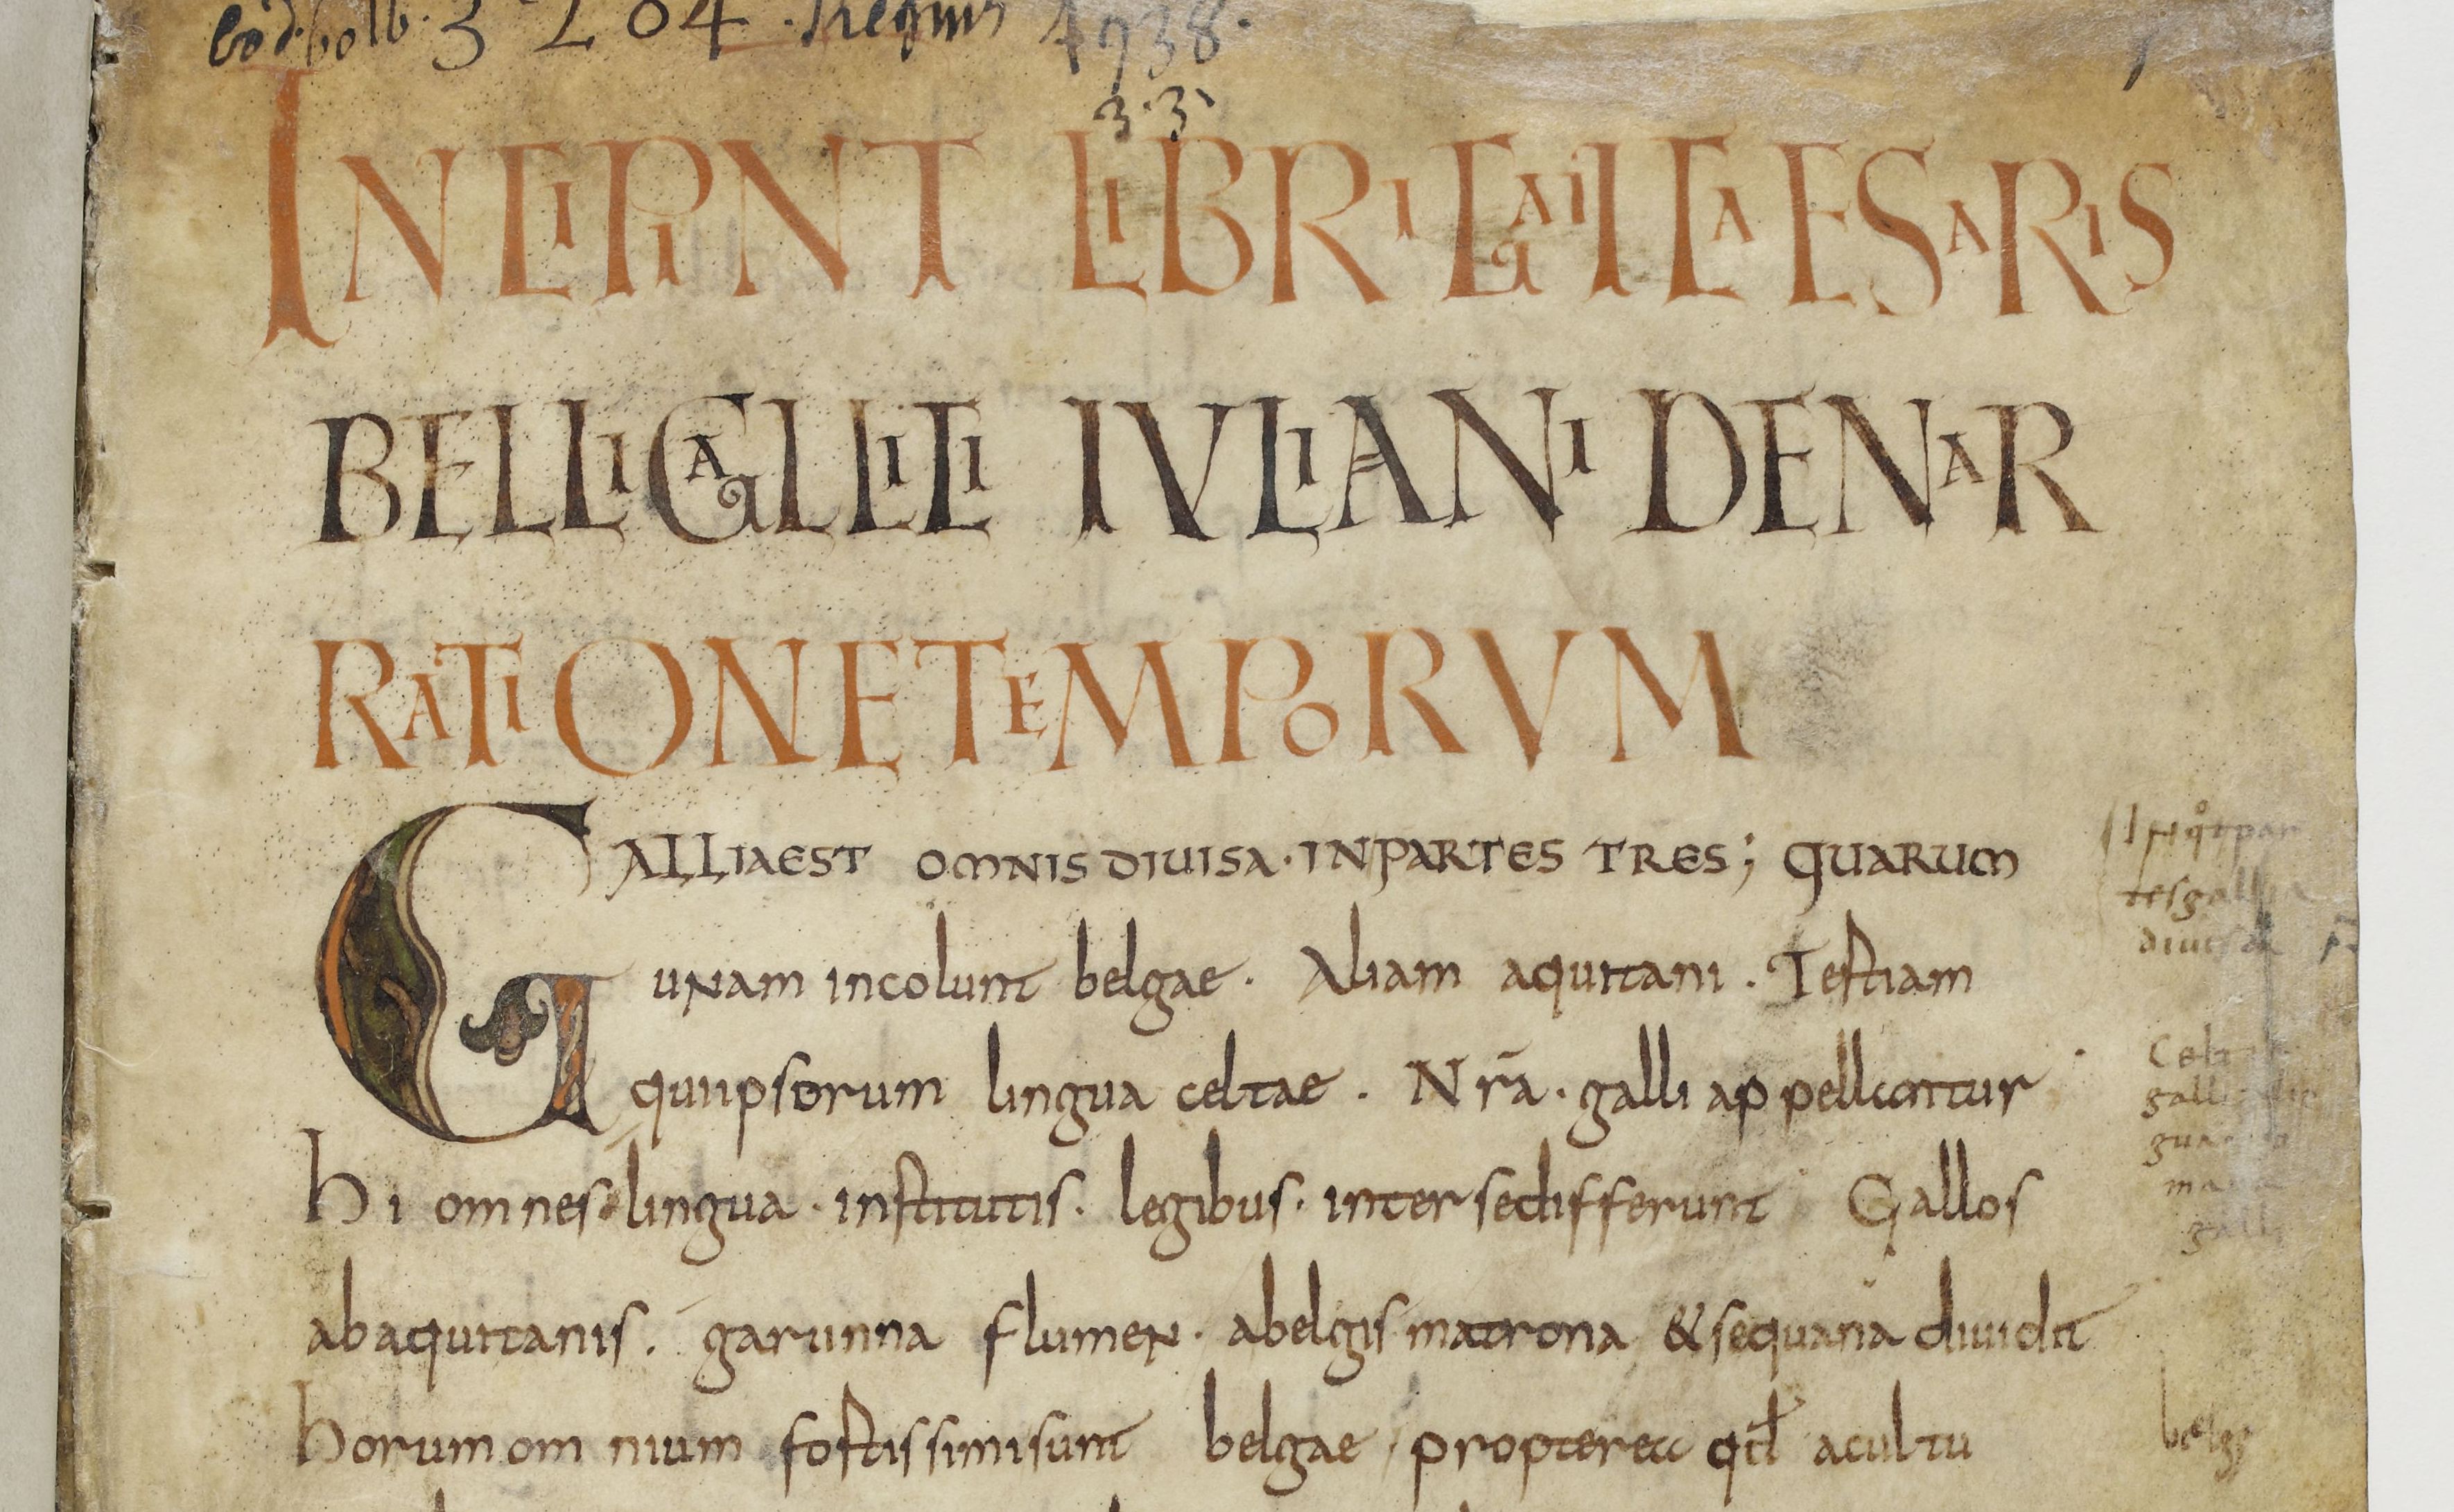 Cod. Colb. 3264. Regius 4938.
3.3.
INCIPIVNT LIBRI GAII CAESARIS
BELLI GALLICI IVLIANI DENAR
RATIONE TEMPORVM
GALLIA EST OMNIS DIUISA · IN PARTES TRES; QUARUM
unam incolunt belgae . Aliam aquitani . Tertiam
qui ipsorum lingua celtae . Nr̄a · galli appellantur
Hi omnes lingua · institutis · legibus · inter se differunt Gallos
ab aquitanis . garunna flumen · a belgis matrona & sequana diuidit
horum omnium fortissimi sunt belgae propterea qđ a cultu